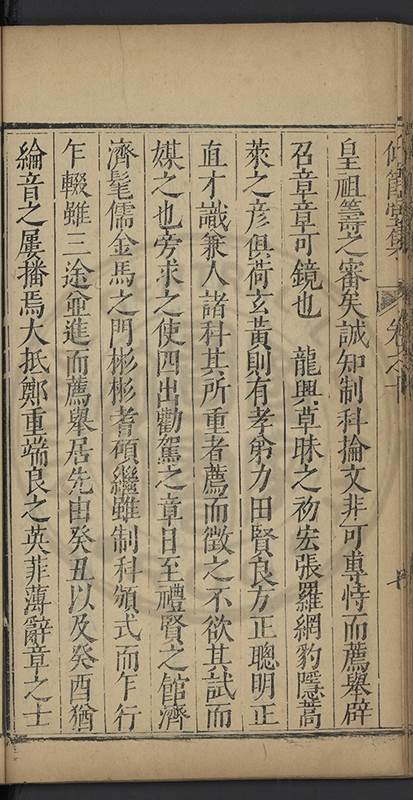 皇祖籌之審矣誠知制科掄文非可專恃而薦舉辟
召章章可鏡也　龍興草昧之初宏張羅網豹隱蒿
萊之彥俱荷玄黃則有孝弟力田賢良方正聰明正
直才識兼人諸科其所重者薦而徵之不欲其試而
媒之也旁求之使四出勸駕之章日至禮賢之館濟
濟髦儒金馬之門彬彬耆碩繼雖制科頒式而乍行
乍輟雖三途並進而薦舉居先由癸丑以及癸酉猶
綸音之屢播焉大抵鄭重端良之英菲薄辭章之士